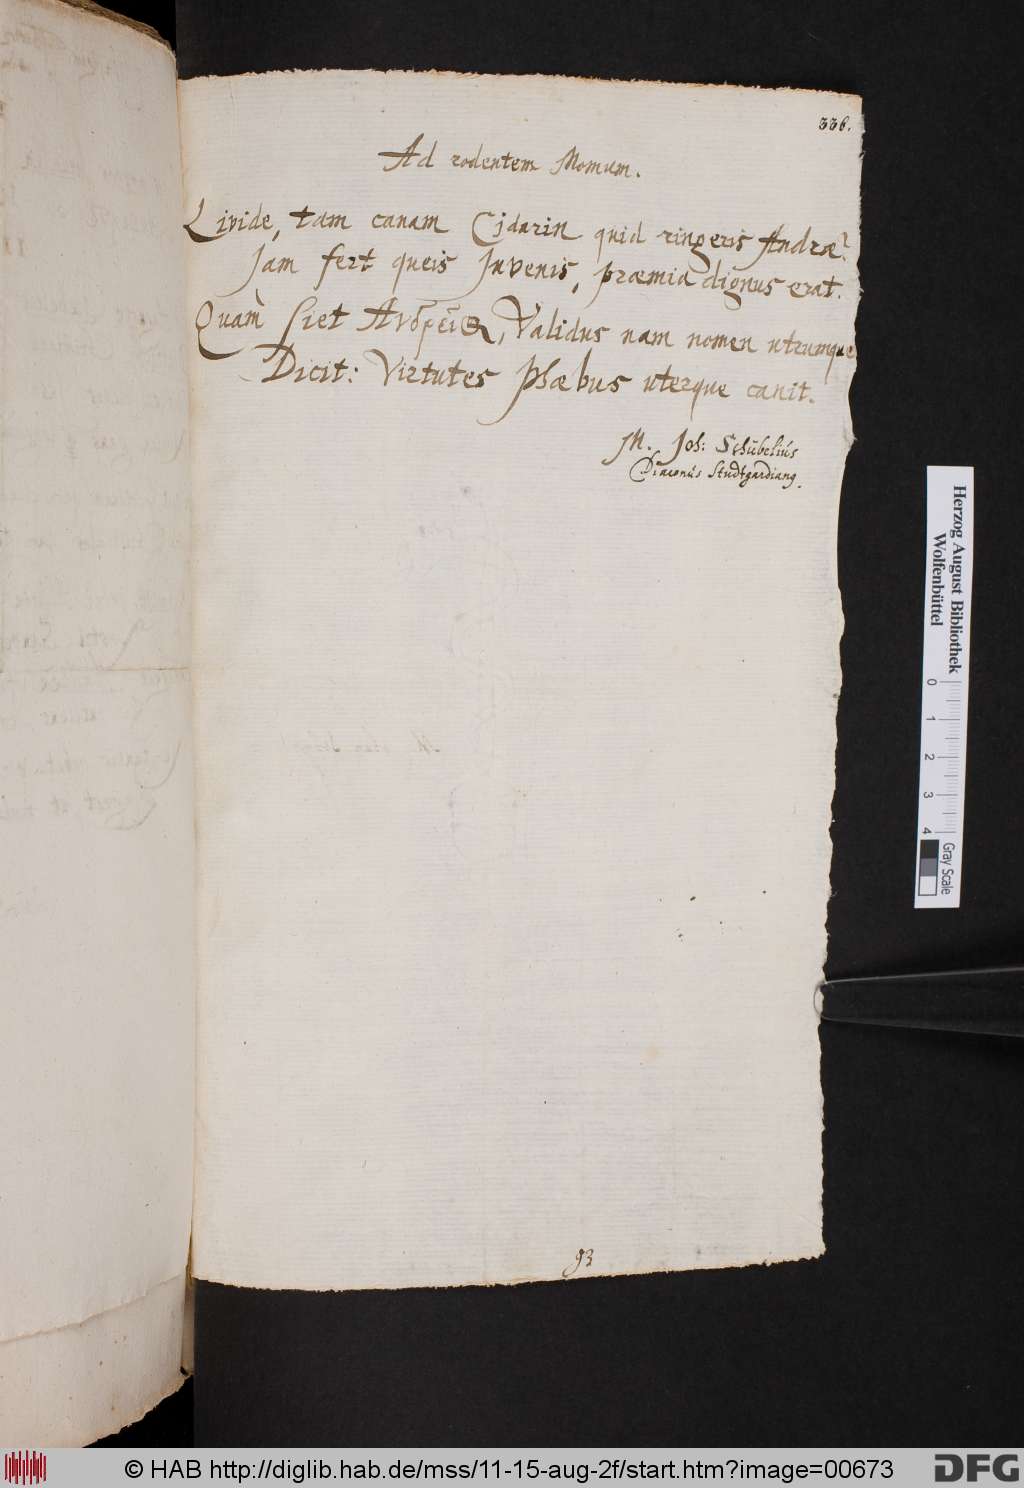 336.
Ad rodentem Momum.
Livide, tam canam Cidarin quid ringeris Andræ?
Jam fert queis Juvenis, præmia dignus erat.
Quàm siet Ανδρεῖος, Validus nam nomen utrumque
Dicit: Virtutes Phæbus uterque canit.
M. Joh: Schübeliús
Diaconús Studtgardianq.
93
Herzog August Bibliothek
Wolfenbüttel
0 1 2 3 4
Gray Scale
© HAB http://diglib.hab.de/mss/11-15-aug-2f/start.htm?image=00673
DFG